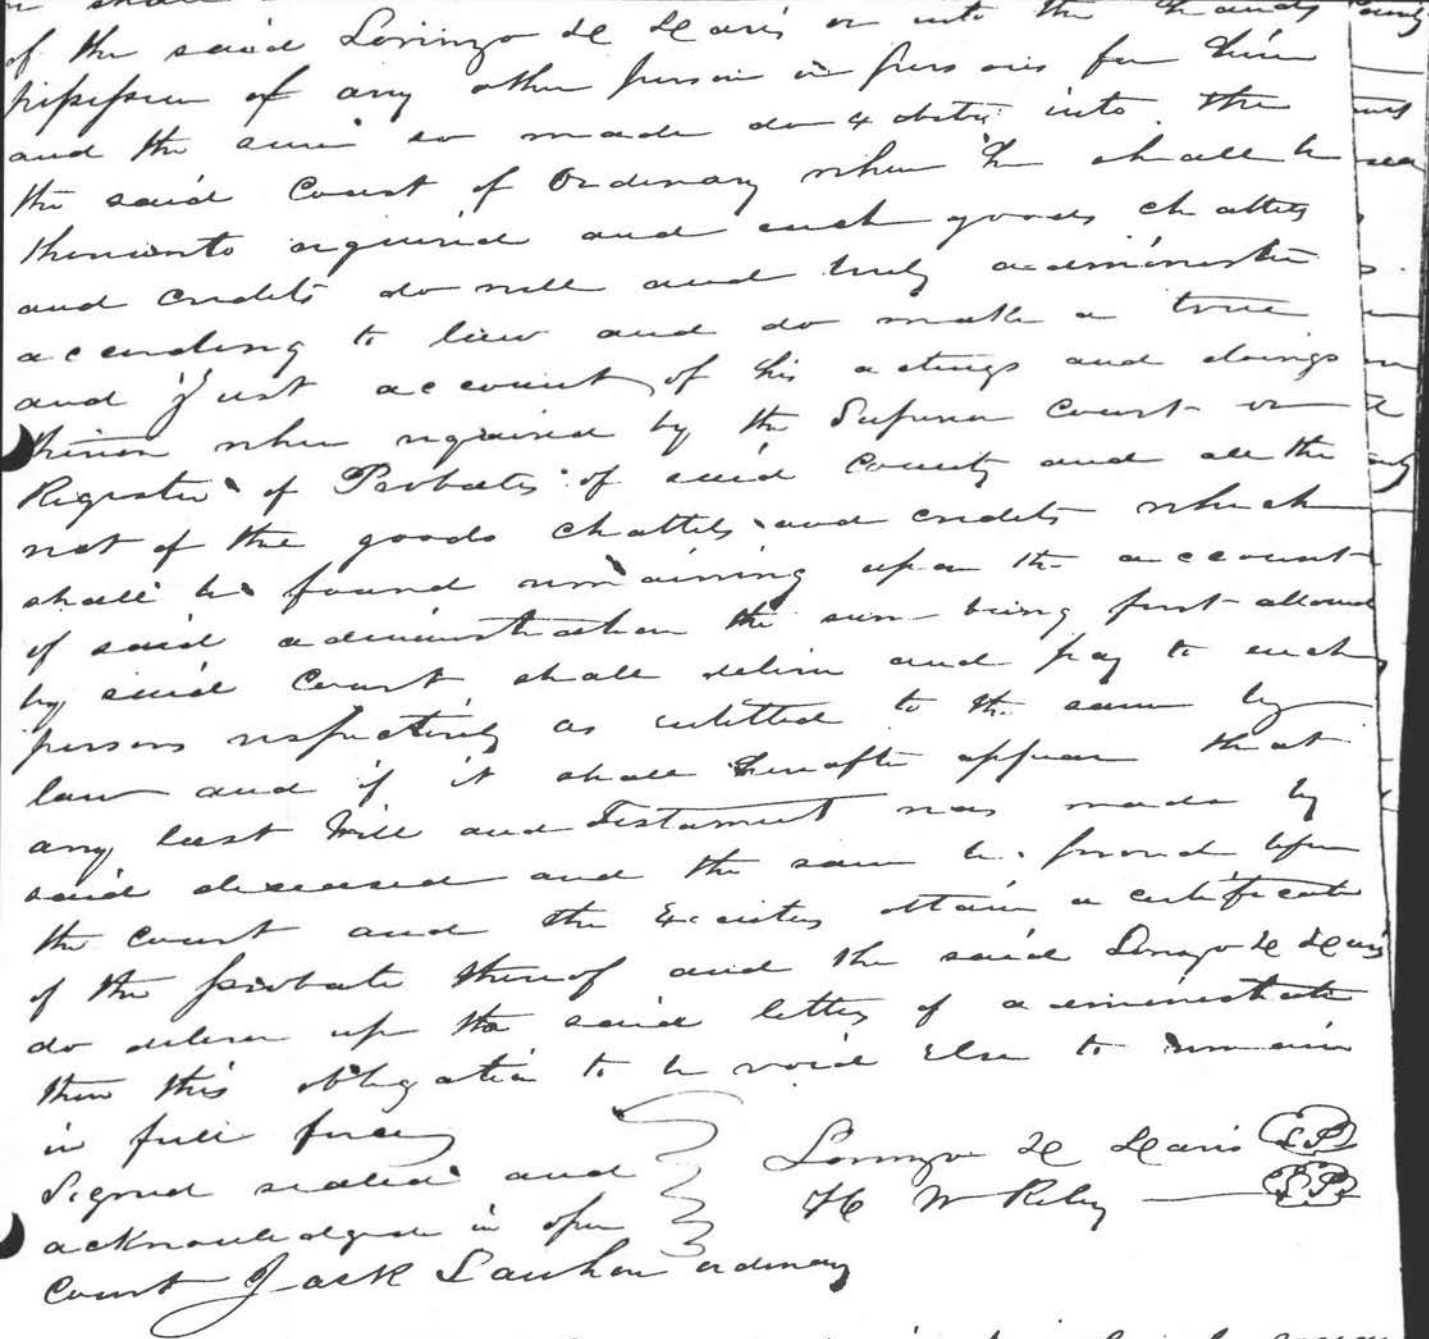 of the said Lorinzo D Davis or into the hands
possession of any other person or persons for him
and the same so made do exhibit into the
the said Court of Ordinary when he shall be
thereunto required and such goods chattles
and credits do well and truly administer
according to law and do make a true
and Just account of his actings and doings
therein when required by the Superior Court or
Register of Probates of said County and all the
rest of the goods chattels and credits which
shall be found remaining upon the account
of said administration the same being first allowed
by said Court shall deliver and pay to such
persons respectively as entitled to the same by
law and if it shall hereafter appear that
any last Will and Testament was made by
said deceased and the same be proved before
the court and the Executors obtain a certificate
of the probate thereof and the said Lorenzo D Davis
do deliver up the said letters of administrate
then this obligation to be void Else to remain
in full force
Signed sealed and
acknowledged in open
Court Jack Lawhon ordinary
Lorenzo D Davis LS
H W Riley LS